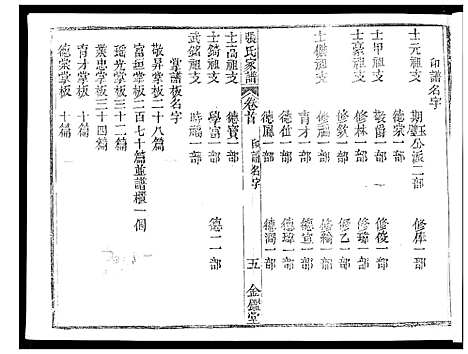 印譜名字
士元祖支 期璧玉公派二部 修俥一部
德宗一部
士甲祖支 敬爵一部 修俊一部
士豪祖支 修林一部 修瑋一部
修敦一部 修乙一部
士傑祖支 修福一部 修翰一部
育才一部 德宣一部
德位一部 德瑋一部
德鳳一部 德潤一部
張氏家譜 卷首 印譜名字 五 金鑑堂
士高祖支 德寶一部
士錡祖支 學富一部 德二一部
武銘祖支 時福一部
掌譜板名字
敬昇掌板二十八篇
富垣掌板二百七十篇並譜櫃一個
瑶光掌板三十二篇
業忠掌板三十四篇
育才掌板 十篇
德崇掌板 十篇